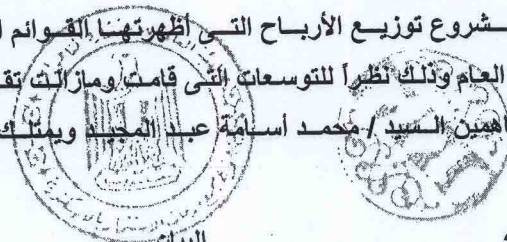 ـشروع توزيـع الأربـاح التـى أظهرتهـا القـوائم ا
العام وذلك نظراً للتوسعات التى قامت ومازالت تق
اهمين السيد / محمد أسامة عبد المجيد ويمتلك
البيان